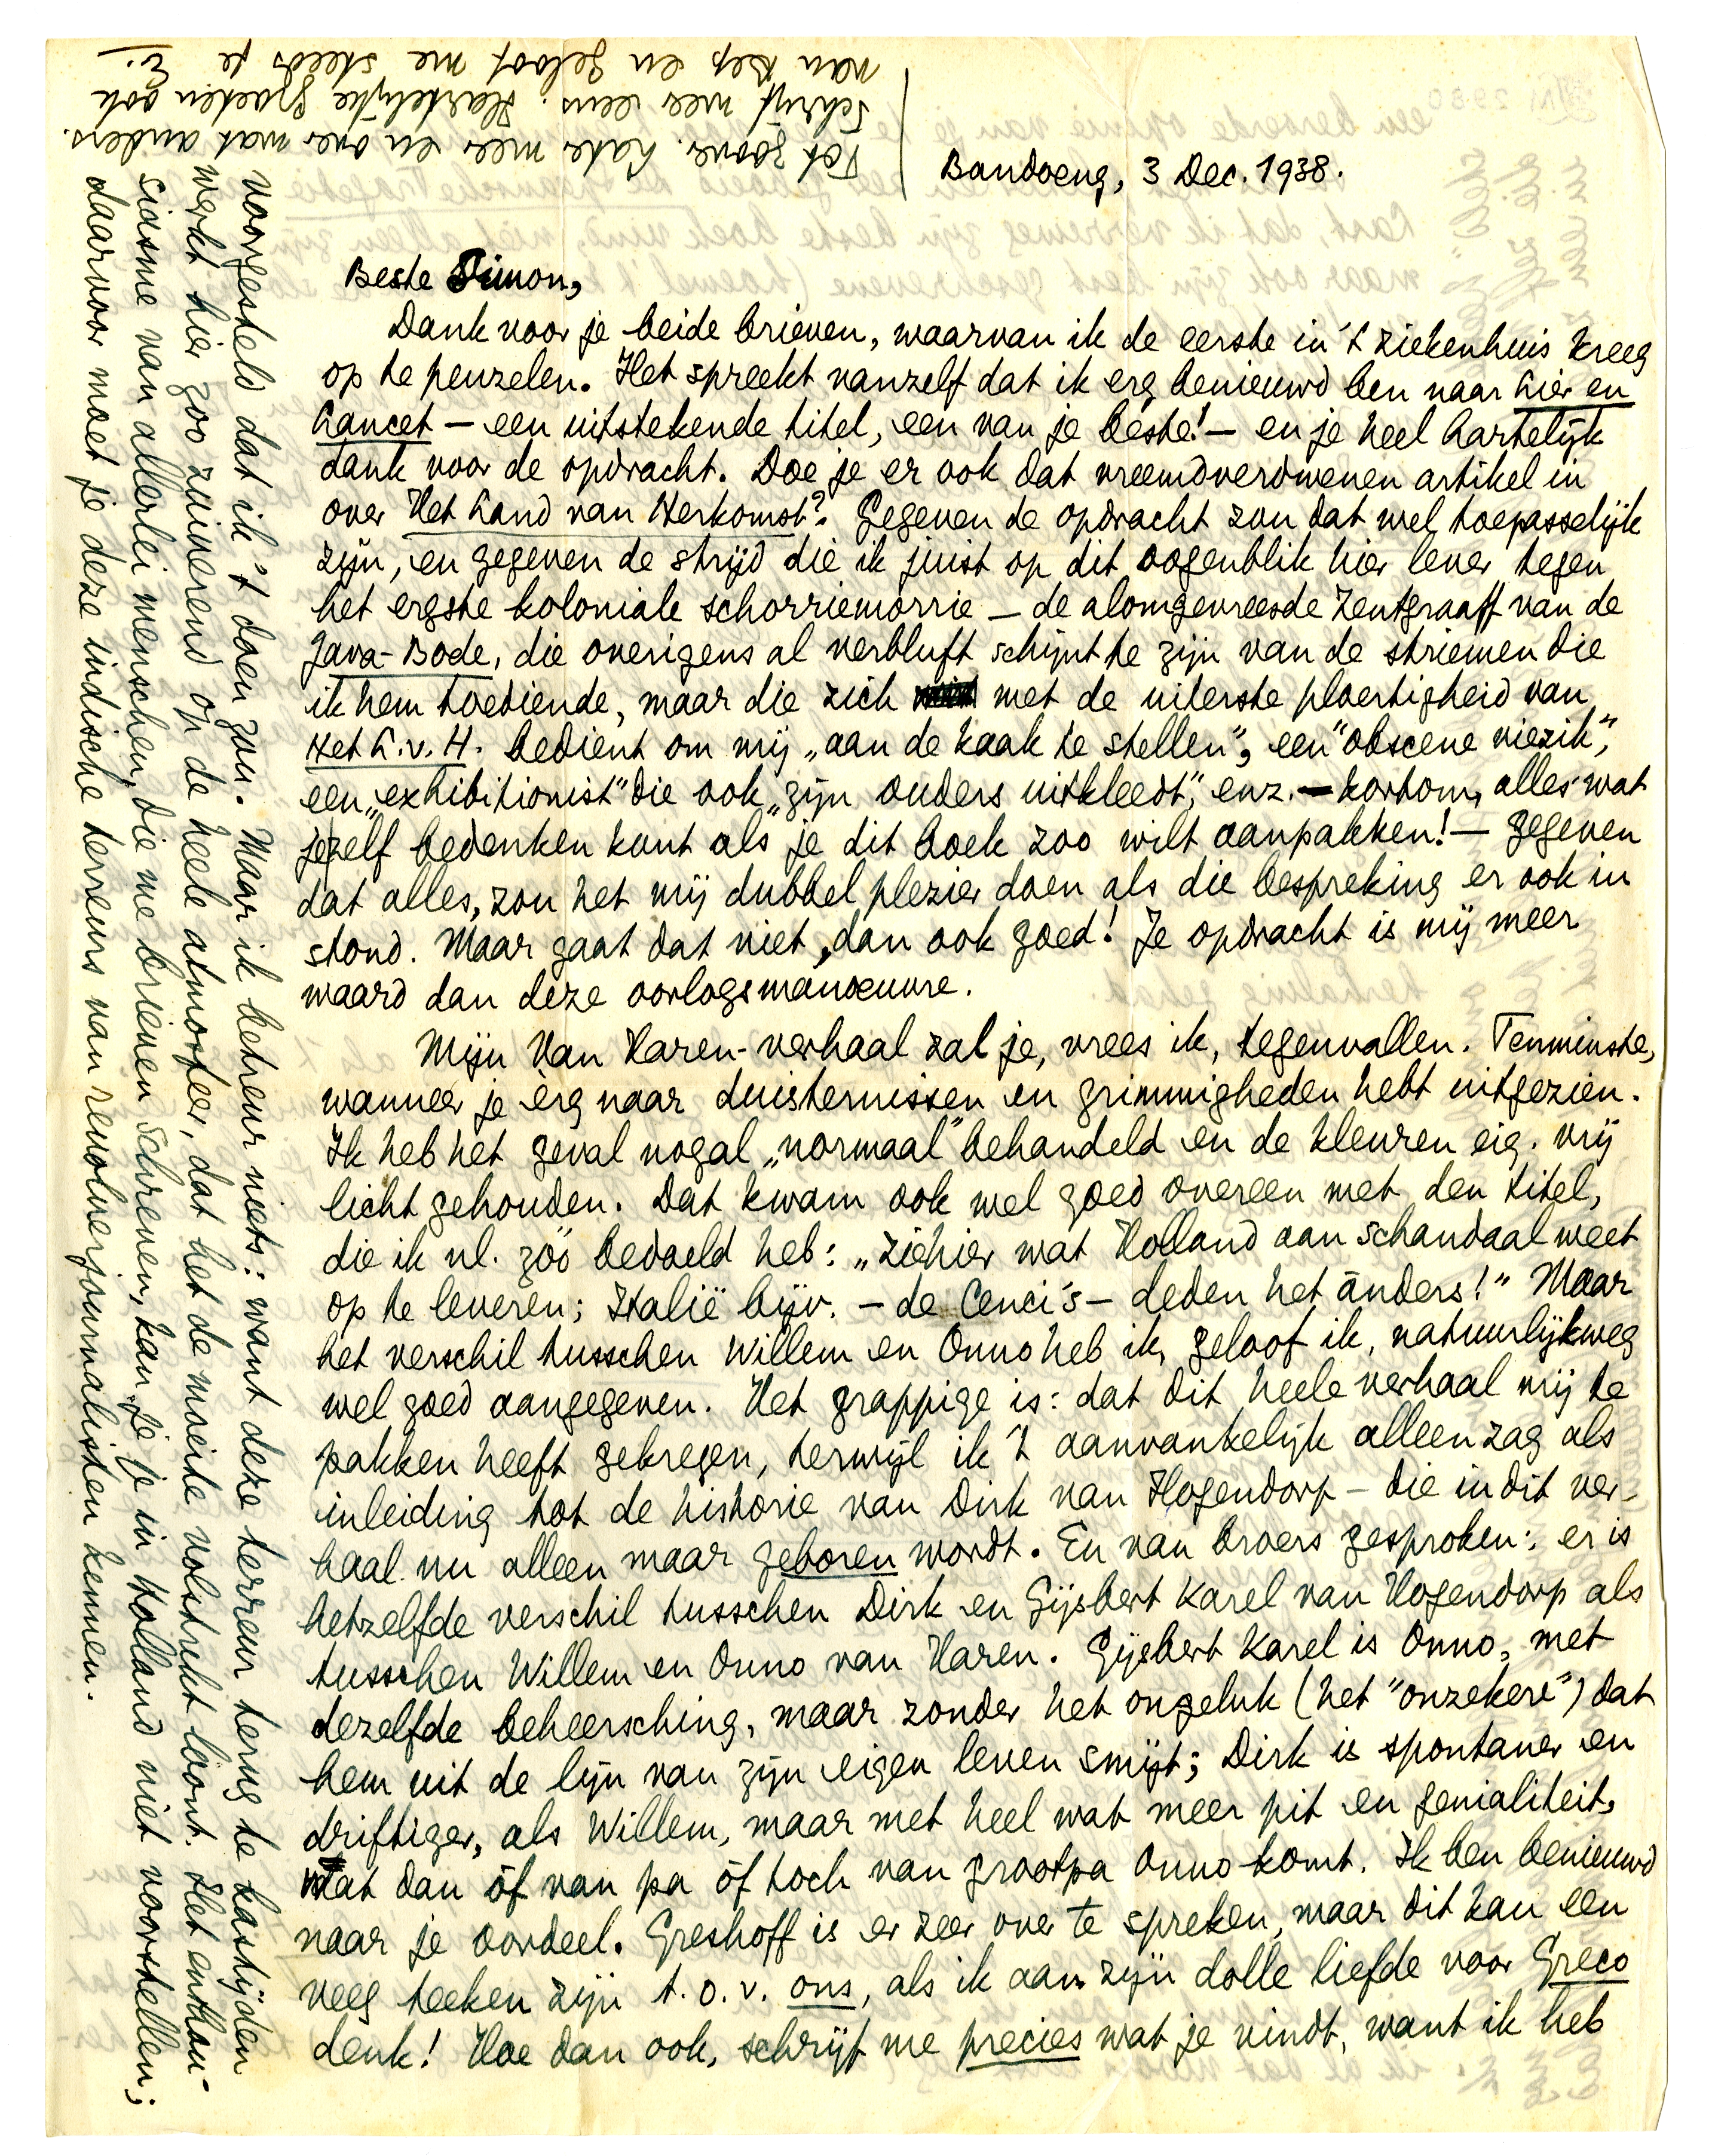 Bandoeng, 3 Dec. 1938.
Beste Simon,
Dank voor je beide brieven, waarvan ik de eerste in 't ziekenhuis kreeg
op te peuzelen. Het spreekt vanzelf dat ik erg benieuwd ben naar Lier en
Lancet — een uitstekende titel, een van je beste! — en je heel hartelijk
dank voor de opdracht. Doe je er ook dat vreemdverdwenen artikel in
over Het Land van Herkomst? Gegeven de opdracht zou dat wel toepasselijk
zijn, en gegeven de strijd die ik juist op dit oogenblik hier lever tegen
het ergste koloniale schorriemorrie — de alomgevreesde Zentgraaff van de
Java-Bode, die overigens al verbluft schijnt te zijn van de striemen die
ik hem toediende, maar die zich met de uiterste ploertigheid van
Het L.v.H. bedient om mij „aan de kaak te stellen", een "obscene viezik",
een „exhibitionist" die ook „zijn ouders uitkleedt", enz. — kortom, alles wat
jezelf bedenken kunt als je dit boek zoo wilt aanpakken! — gegeven
dat alles, zou het mij dubbel plezier doen als die bespreking er ook in
stond. Maar gaat dat niet, dan ook goed! Je opdracht is mij meer
waard dan deze oorlogsmanoeuvre.
Mijn Van Haren-verhaal zal je, vrees ik, tegenvallen. Tenminste,
wanneer je èrg naar duisternissen en grimmigheden hebt uitgezien.
Ik heb het geval nogal „normaal" behandeld en de kleuren eig. vrij
licht gehouden. Dat kwam ook wel goed overeen met den titel,
die ik nl. zóó bedoeld heb: „Ziehier wat Holland aan schandaal weet
op te leveren; Italië bijv. — de Cenci's — deden het ànders!" Maar
het verschil tusschen Willem en Onno heb ik, geloof ik, natuurlijkweg
wel goed aangegeven. Het grappige is: dat dit heele verhaal mij te
pakken heeft gekregen, terwijl ik 't aanvankelijk alleen zag als
inleiding tot de historie van Dirk van Hogendorp — die in dit ver-
haal nu alleen maar geboren wordt. En van broers gesproken: er is
hetzelfde verschil tusschen Dirk en Gijsbert Karel van Hogendorp als
tusschen Willem en Onno van Haren. Gijsbert Karel is Onno, met
dezelfde beheersching, maar zonder het ongeluk (het "onzekere") dat
hem uit de lijn van zijn eigen leven smijt; Dirk is spontaner en
driftiger, als Willem, maar met heel wat meer pit en genialiteit,
wat dan óf van pa óf toch van grootpa Onno komt. Ik ben benieuwd
naar je oordeel. Greshoff is er zeer over te spreken, maar dit kan een
veeg teeken zijn t.o.v. ons, als ik aan zijn dolle liefde voor Greco
denk! Hoe dan ook, schrijf me precies wat je vindt, want ik heb
voorgesteld dat ik 't doen zou. Maar ik betreur niets: want deze terreur terug te kastijden
werkt hier zoo zuiverend op de heele atmosfeer, dat het de moeite volstrekt loont. Het enthou-
siasme van allerlei menschen, die me brieven schreven, kan je je in Holland niet voorstellen;
daarvoor moet je deze indische terreurs van revolverjournalisten kennen.
Tot zoover. Later meer en over wat anders.
Schrijf weer eens. Hartelijke groeten ook
van Bep en geloof me steeds je
E.